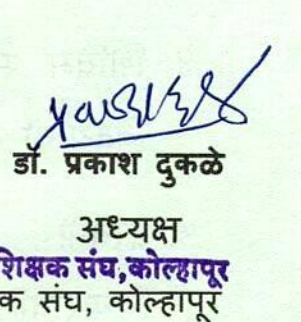 डॉ. प्रकाश दुकळे
अध्यक्ष
शिक्षक संघ,कोल्हापूर
क संघ, कोल्हापूर